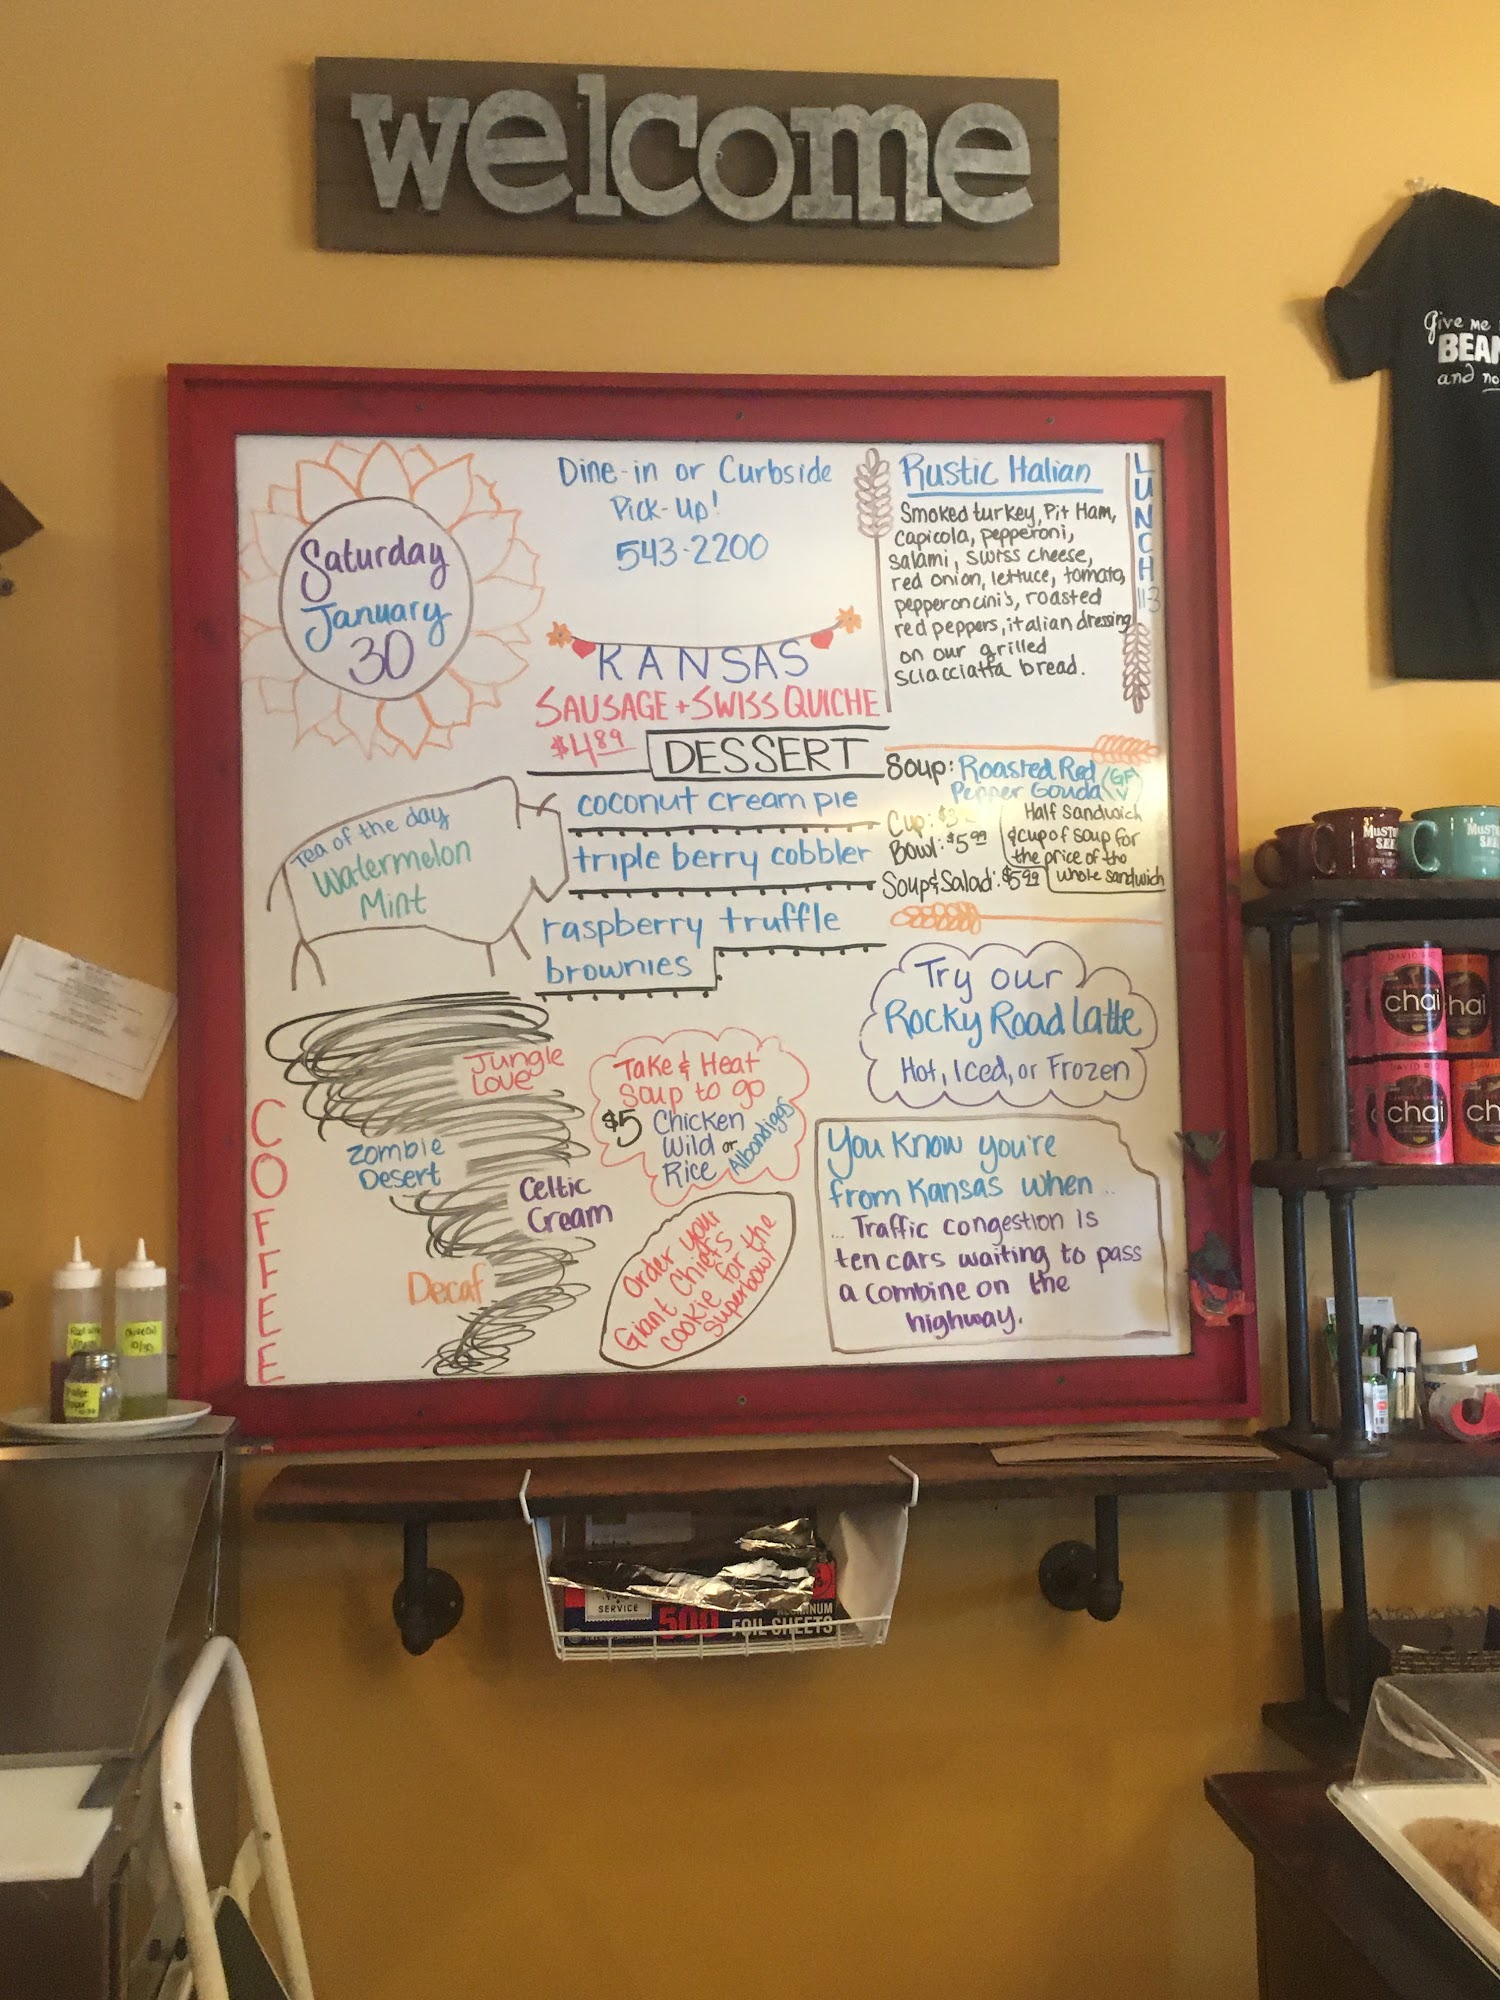 welcome
Give me
BEAN
and no
Saturday
January
30
Dine-in or Curbside
Pick-Up!
543-2200
KANSAS
SAUSAGE + SWISS QUICHE
$4.89
DESSERT
coconut cream pie
triple berry cobbler
raspberry truffle
brownies
Rustic Italian
Smoked turkey, Pit Ham,
capicola, pepperoni,
salami, swiss cheese,
red onion, lettuce, tomato,
pepperoncini's, roasted
red peppers, italian dressing
on our grilled
sciacciatta bread.
LUNCH
11-3
Soup: Roasted Red
Pepper Gouda
GF
V
Cup:
Bowl: $5.99
Soup & Salad: $5.99
Half Sandwich
& cup of soup for
the price of the
whole sandwich
Tea of the day
Watermelon
Mint
COFFEE
Jungle
Love
Zombie
Desert
Celtic
Cream
Decaf
Take & Heat
Soup to go
$5 Chicken
Wild or
Rice
Albondigas
Order your
Giant Chiefs
cookie for the
superbowl
Try our
Rocky Road Latte
Hot, Iced, or Frozen
You know you're
from Kansas when ..
.. Traffic congestion is
ten cars waiting to pass
a combine on the
highway.
DAVID RIO
chai
chai
DAVID RIO
chai
ch
SERVICE
500
FOIL SHEETS